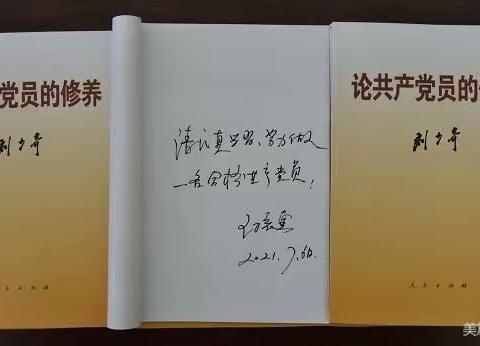 党员的修养
刘少奇
人民出版社
请认真学习、努力做
一名合格共产党员！
2021.7.
论共产党员的
刘少奇
人民出版社
美